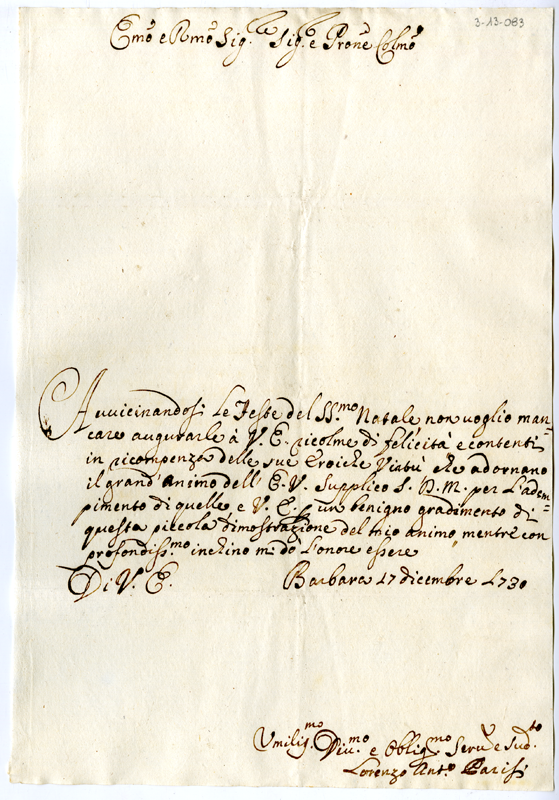 3-13-083
Emo e Rmo Sig.le Sig.e Prone Colmo
Avvicinandosi le Feste del SS.mo Natale non voglio man=
care augurarle à V. E. ricolme di felicità e contenti
in ricompenza delle sue Eroiche Virtù che adornano
il grand'animo dell' E. V. Supplico S. D. M. per l'adem=
pimento di quelle e V. E. un benigno gradimento di
questa piccola dimostrazione del mio animo, mentre con
profondiss.mo inchino mi dò l'onore essere
Di V. E. Barbara 17 dicembre 1730
Umilis.mo Div.mo e Oblig.mo Serv.e e Sud.to
Lorenzo Ant.o Parisi